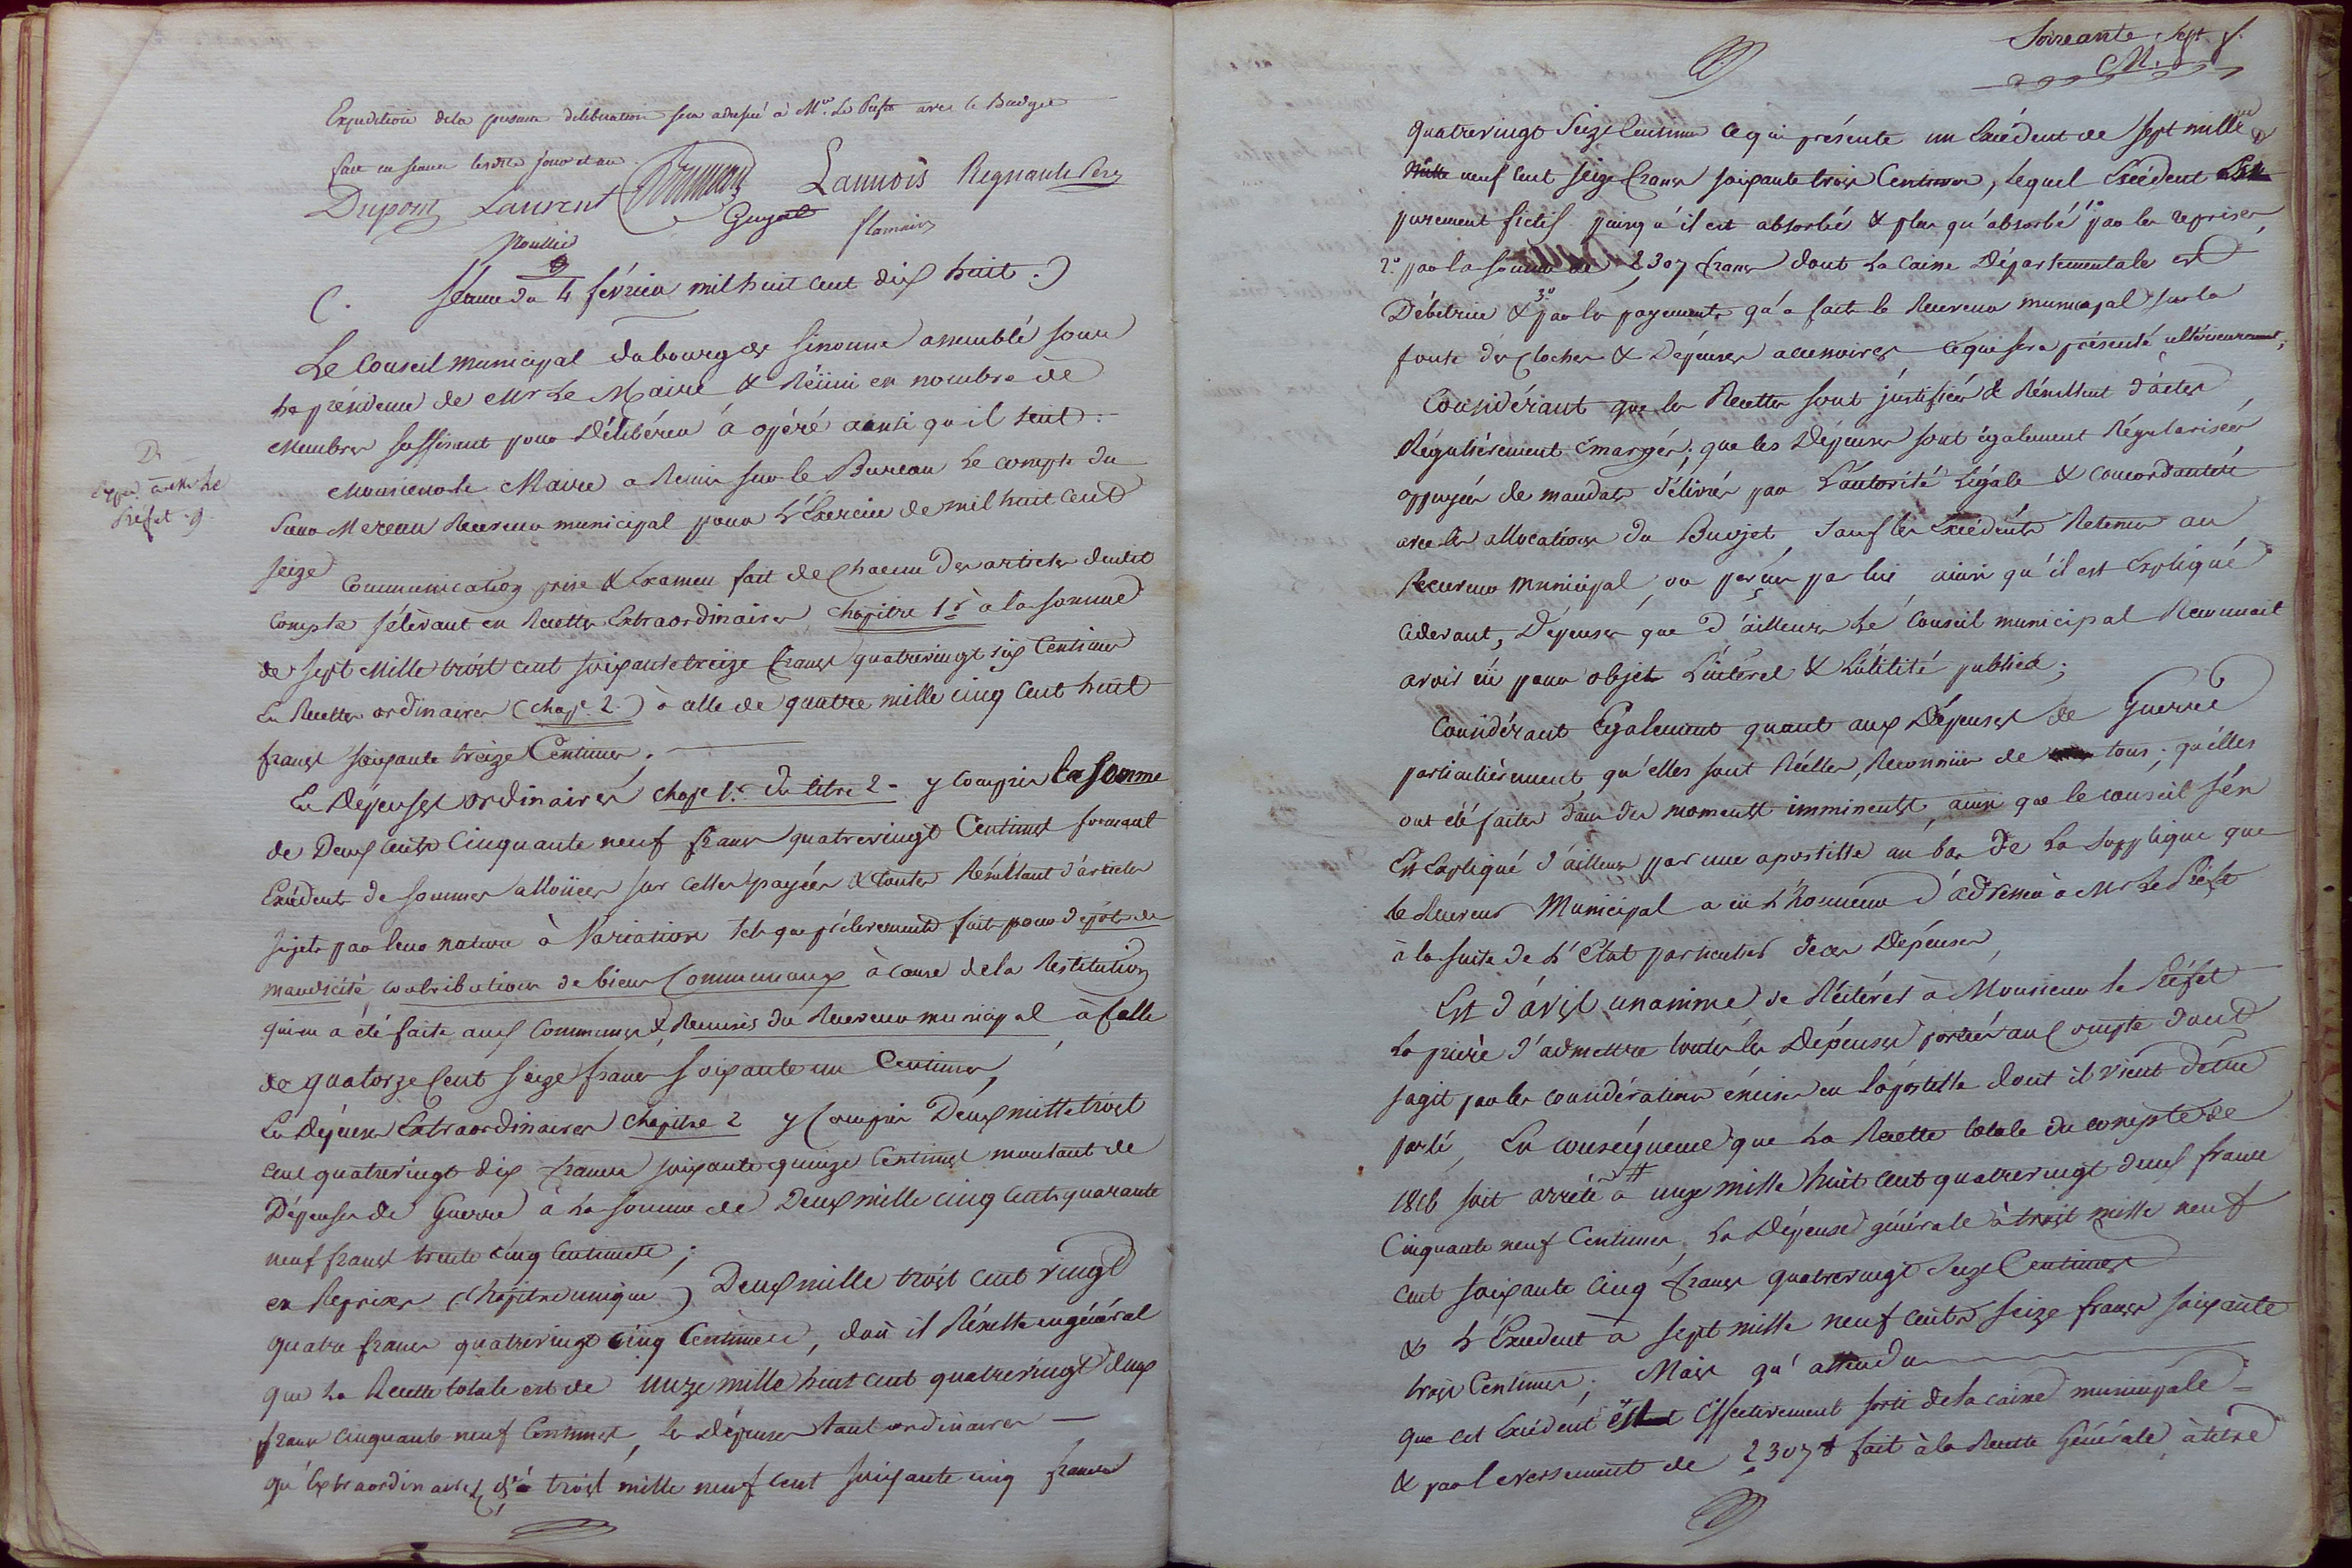 Expedition dela presente deliberation sera adressée à Mr. Le Prefet avec le Budget
fait en seance lesdits jour et an.
Dupont Laurent Lannois Regnault Perz
Guyot flamain
Noullié
C. Séance du 4 février mil huit cent dix huit.
Le Conseil municipal du bourg de Senonne assemblé sous
la présidence de Mr Le Maire & Réüni en nombre de
Membres suffisant pour Délibérer à opéré ainsi qu'il suit :
Monsieur le Maire a Remis sur le Bureau Le compte du
Sieur Mereau Receveur municipal pour L'Exercice de mil huit Cent
Seize
Communication prise & Examen fait de Chacun Des articles dudit
Compte S'élèvant en Recettes Extraordinaires Chapitre 1r à la somme
de sept Mille trois cent soixante treize francs quatrevingt six Centimes
En Recettes ordinaires (Chap. 2.) à celle de quatre mille cinq Cent huit
francs soixante treize Centimes.
En Dépenses ordinaires chap 1r. du titre 2 - y compris la Somme
de Deux Cents Cinquante neuf francs quatrevingt Centimes formant
Exédent de sommes allouées sur celles payées & toutes Résultant d'articles
sujets par leur nature à Variation tels que prélèvements faits pour dépôt de
mandicité, contributions de biens Communaux à cause dela Restitution
qui en a été faite aux Communes & Remises du Receveur municipal, à Celle
de quatorze Cent seize francs soixante un Centimes,
En Dépenses Extraordinaires Chapitre 2 y Compris Deux mille trois
cent quatrevingt dix francs soixante quinze Centimes montant de
Dépenses de Guerre à La somme de Deux mille cinq Cents quarante
neuf francs trente cinq Centimes ;
en Reprises (Chapitre unique) Deux mille trois cent vingt
quatre francs quatrevingt cinq Centimes, d'où il Résulte en général
que La Recette totale est de onze mille huit cent quatrevingt deux
francs cinquante neuf Centimes, La dépense tant ordinaires
qu'Extraordinaires de trois mille neuf cent soixante cinq francs
Expd. à Mr Le
Préfet
Soixante, sept f.
quatrevingt Seize Centimes ce qui présente un Excédent de sept mille
neuf Cent seize francs soixante trois Centimes, Lequel Excédent est
purement fictif puisqu'il est absorbé & plus qu'absorbé 1° par les reprises,
2° par la somme de 2,307 francs dont la Caisse Départementale est
Débitrice & 3° par les payements qu'a faits le Receveur municipal sur la
fonte du clocher & Dépenses accessoires ce qui sera présenté ultérieurement,
Considérant que les Recettes sont justifiées & Résultent d'actes
Régulièrement émargés ; que les Dépenses sont également Régularisées
appuyées de mandats délivrés par L'autorité Légale & concordantes
avec les allocations du Budjet, sauf les Excédents Retenus au
Receveur Municipal, ou perçus par lui ainsi qu'il est Expliqué
cidevant, Dépenses que d'ailleurs Le Conseil municipal Reconnait
avoir eü pour objet L'intérêt & L'utilité publics ;
Considérant Egalement quant aux Dépenses de Guerre
particulièrement, qu'elles sont Réelles, Reconnües de tous ; qu'elles
ont été faites dans des moments imminents, ainsi que le conseil s'en
Est Expliqué d'ailleurs par une apostille au bas de La Supplique que
le Receveur Municipal a eü L'Honneur d'adresser à Mr Le Préfet
à la suite de L'Etat particulier de ces Dépenses,
Est d'avis unanime de Réitérer à Monsieur le Préfet
La prière d'admettre toutes les Dépenses portées au Compte dont
s'agit par les considérations émises en L'apostille dont il vient d'être
parlé, En conséquence que La Recette totale du compte de
1816 soit arrêtée à onze mille huit cent quatrevingt deux francs
Cinquante neuf Centimes, La Dépense générale à trois mille neuf
cent soixante Cinq francs quatrevingt Seize Centimes
& L'Excédent à sept mille neuf Cents seize francs soixante
trois Centimes ; Mais qu'attendu
que cet Excédent est Effectivement sorti dela caisse municipale
& par le versement de 2307 f fait à la Recette Générale à titre